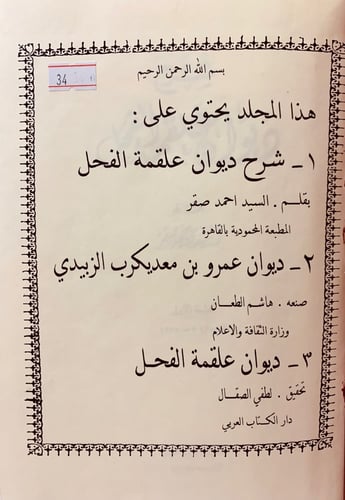 بسم الله الرحمن الرحيم
34
هذا المجلد يحتوي على :
١ ـ شرح ديوان علقمة الفحل
بقلم . السيد احمد صقر
المطبعة المحمودية بالقاهرة
٢ ـ ديوان عمرو بن معديكرب الزبيدي
صنعه . هاشم الطعان
وزارة الثقافة والاعلام
٣ ـ ديوان علقمة الفحل
تحقيق . لطفي الصقال
دار الكتاب العربي